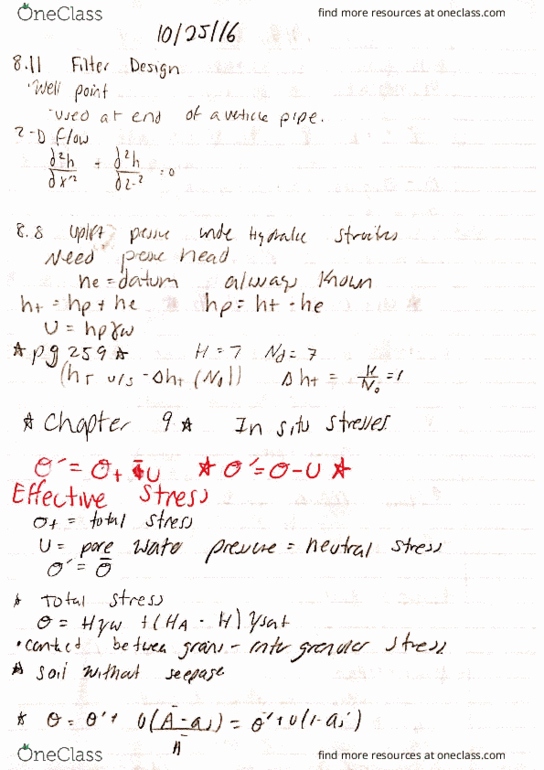 OneClass
find more resources at oneclass.com
10/25/16
8.11 Filter Design
·Well point
-used at end of a verticle pipe.
2-D flow
∂²h/∂x² + ∂²h/∂z² = 0
8.8 Uplift pressure under Hydraulic
Need pressure head
he = datum always known
ht = hp + he hp = ht - he
U = hpγw
* pg 259 * H = 7 Nd = 7
(hT u/s - Δht (Nd)) Δht = H/Nd = 1
* Chapter 9 * In situ stresses
σ' = σt + U * σ' = σ - U *
Effective Stress
σt = total stress
U = pore water pressure = neutral stress
σ' = σ̄
* Total stress
σ = Hγw + (HA - H) γsat
• contact between grains - inter granular stress
* soil without seepage
* σ = σ' + U(A̅ - as)/A̅ = σ' + U(1 - as')
OneClass
find more resources at oneclass.com